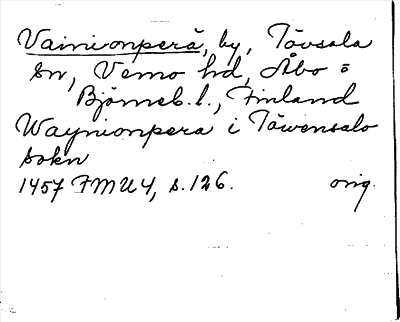 Vainionperä, by, Tövsala
sn, Vemo hd, Åbo o
Björneb. l., Finland
Waynionpera i Täwensalo
sokn
1457 FMU 4, s. 126. orig.